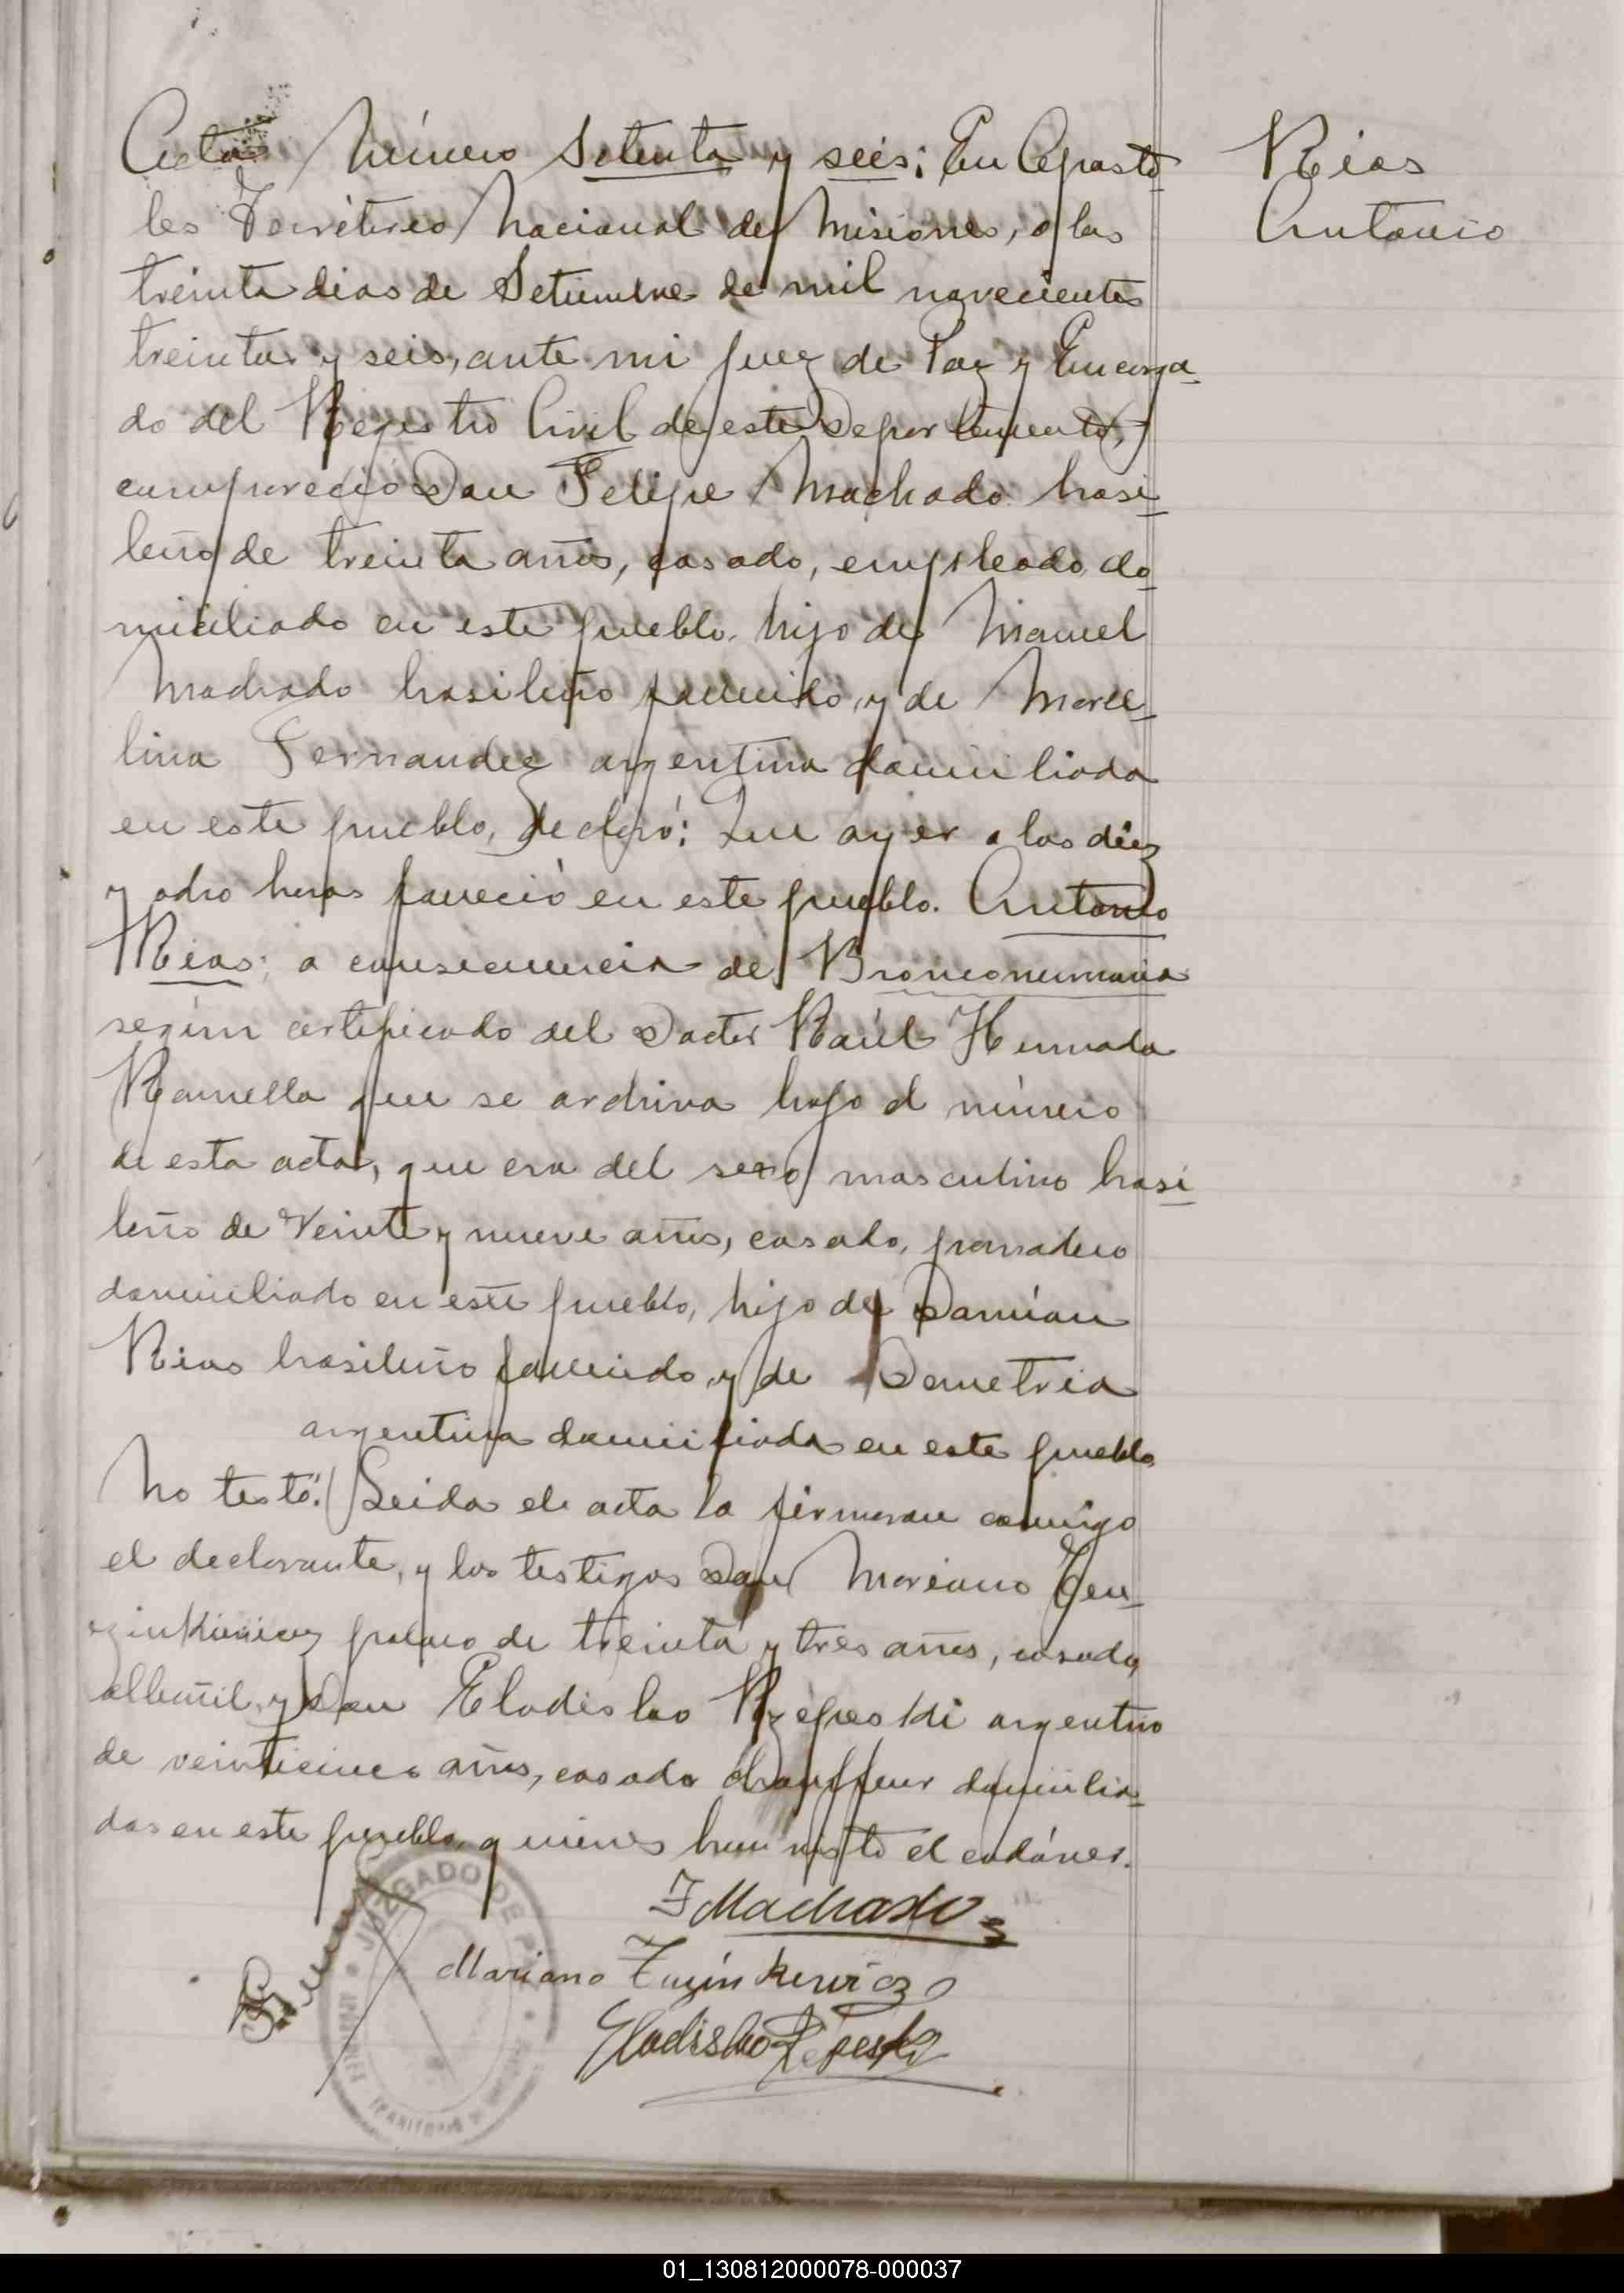 Acta Número Setenta y seis; En Aposto-
les Territorio Nacional de Misiones, a los
treinta dias de Setiembre de mil novecientos
treinta y seis, ante mi Juez de Paz y Encarga-
do del Registro Civil de este Departamento,
compareció Don Felipe Machado brasi-
leño de treinta años, casado, empleado, do-
miciliado en este pueblo, hijo de Manuel
Machado brasileño fallecido, y de Marce-
lina Fernandez argentina domiciliada
en este pueblo, declaró: Que ayer a las diez
y ocho horas falleció en este pueblo. Antonio
Rios; a consecuencia de Bronconeumonia
según certificado del Doctor Raúl
Ramella que se archiva bajo el número
de esta acta, que era del sexo masculino brasi-
leño de veinte y nueve años, casado, panadero
domiciliado en este pueblo, hijo de Damian
Rios brasileño fallecido, y de Demetria
argentina domiciliada en este pueblo
No testó. Leida el acta la firmaron conmigo
el declarante, y los testigos Don Mariano
polaco de treinta y tres años, casado,
albañil, y Don Eladislao argentino
de veinticinco años, casado chauffeur domicilia-
dos en este pueblo, quienes han visto el cadáver.
Rios
Antonio
F Machado
Mariano
Eladislao
JUZGADO DE PAZ
01_130812000078-000037